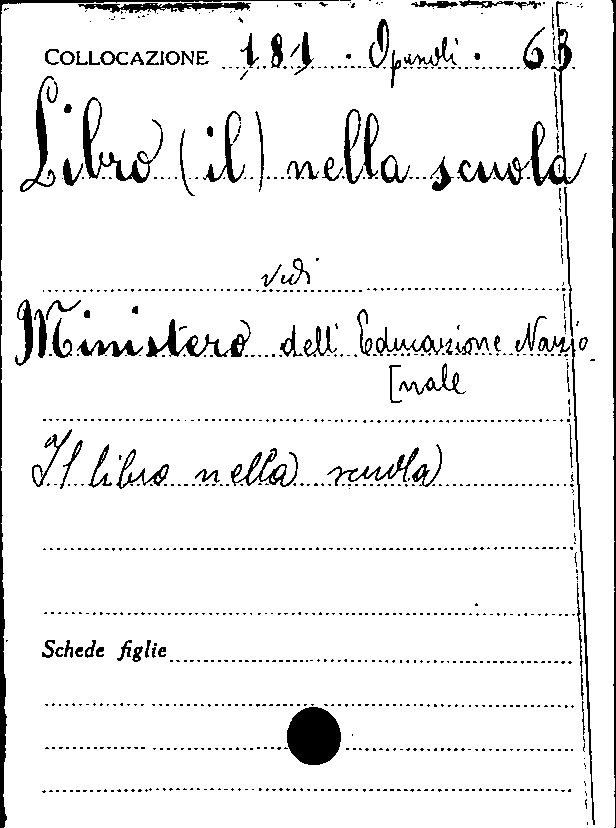 COLLOCAZIONE 181 · Opuscoli · 63
Libro (il) nella scuola
vedi
Ministero dell' Educazione Nazio-
[nale
Il libro nella scuola
Schede figlie